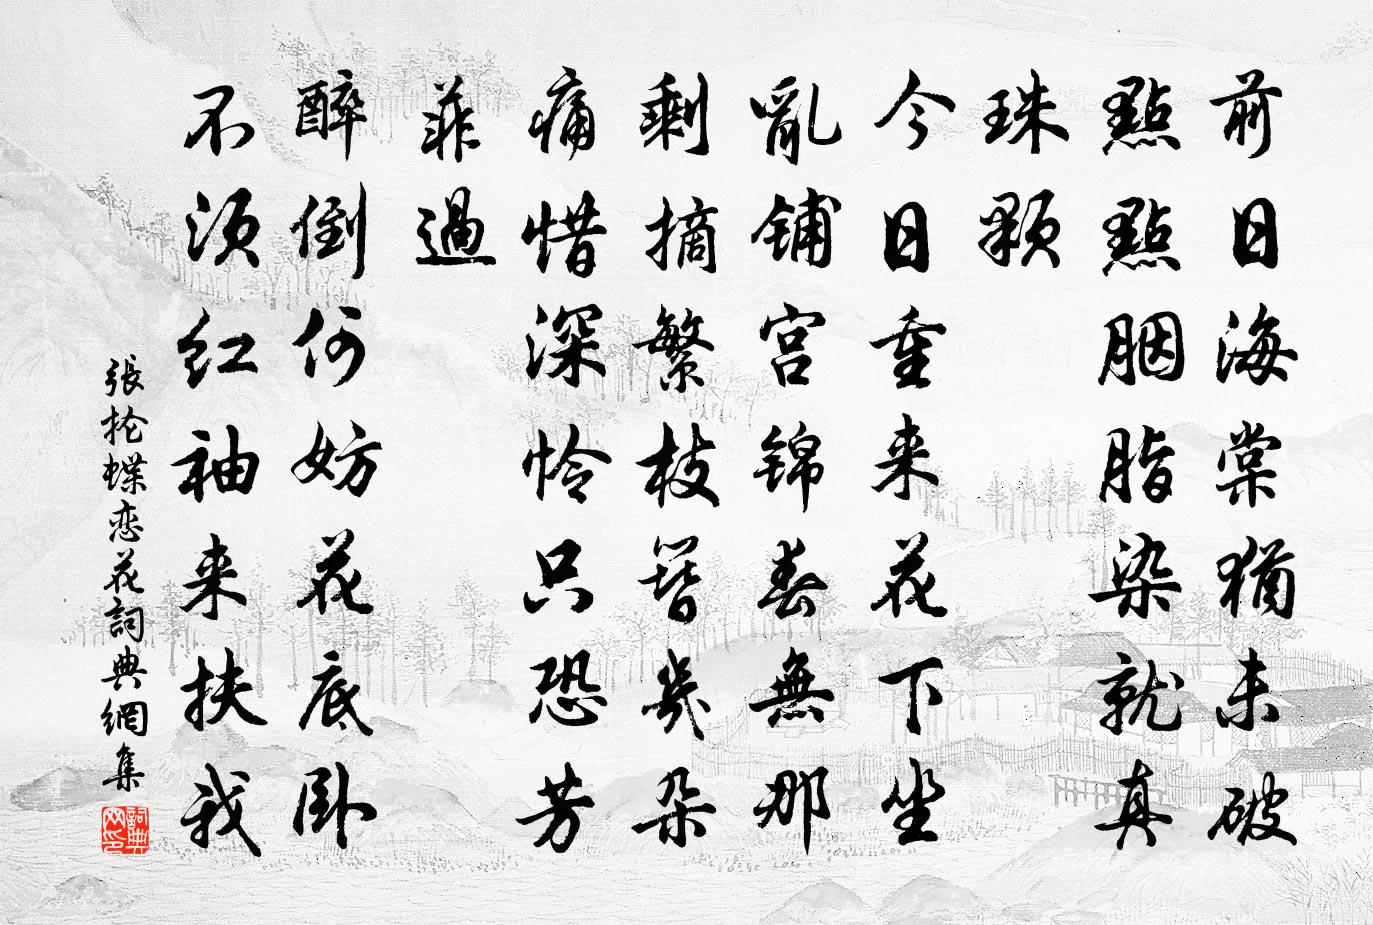 前日海棠猶未破
點點胭脂染就真
珠颗
今日重来花下坐
亂铺宫锦春無那
剩摘繁枝簪幾朵
痛惜深怜只恐芳
菲過
醉倒何妨花底卧
不须红袖来扶我
張抡蝶恋花詞典網集
詞典网印